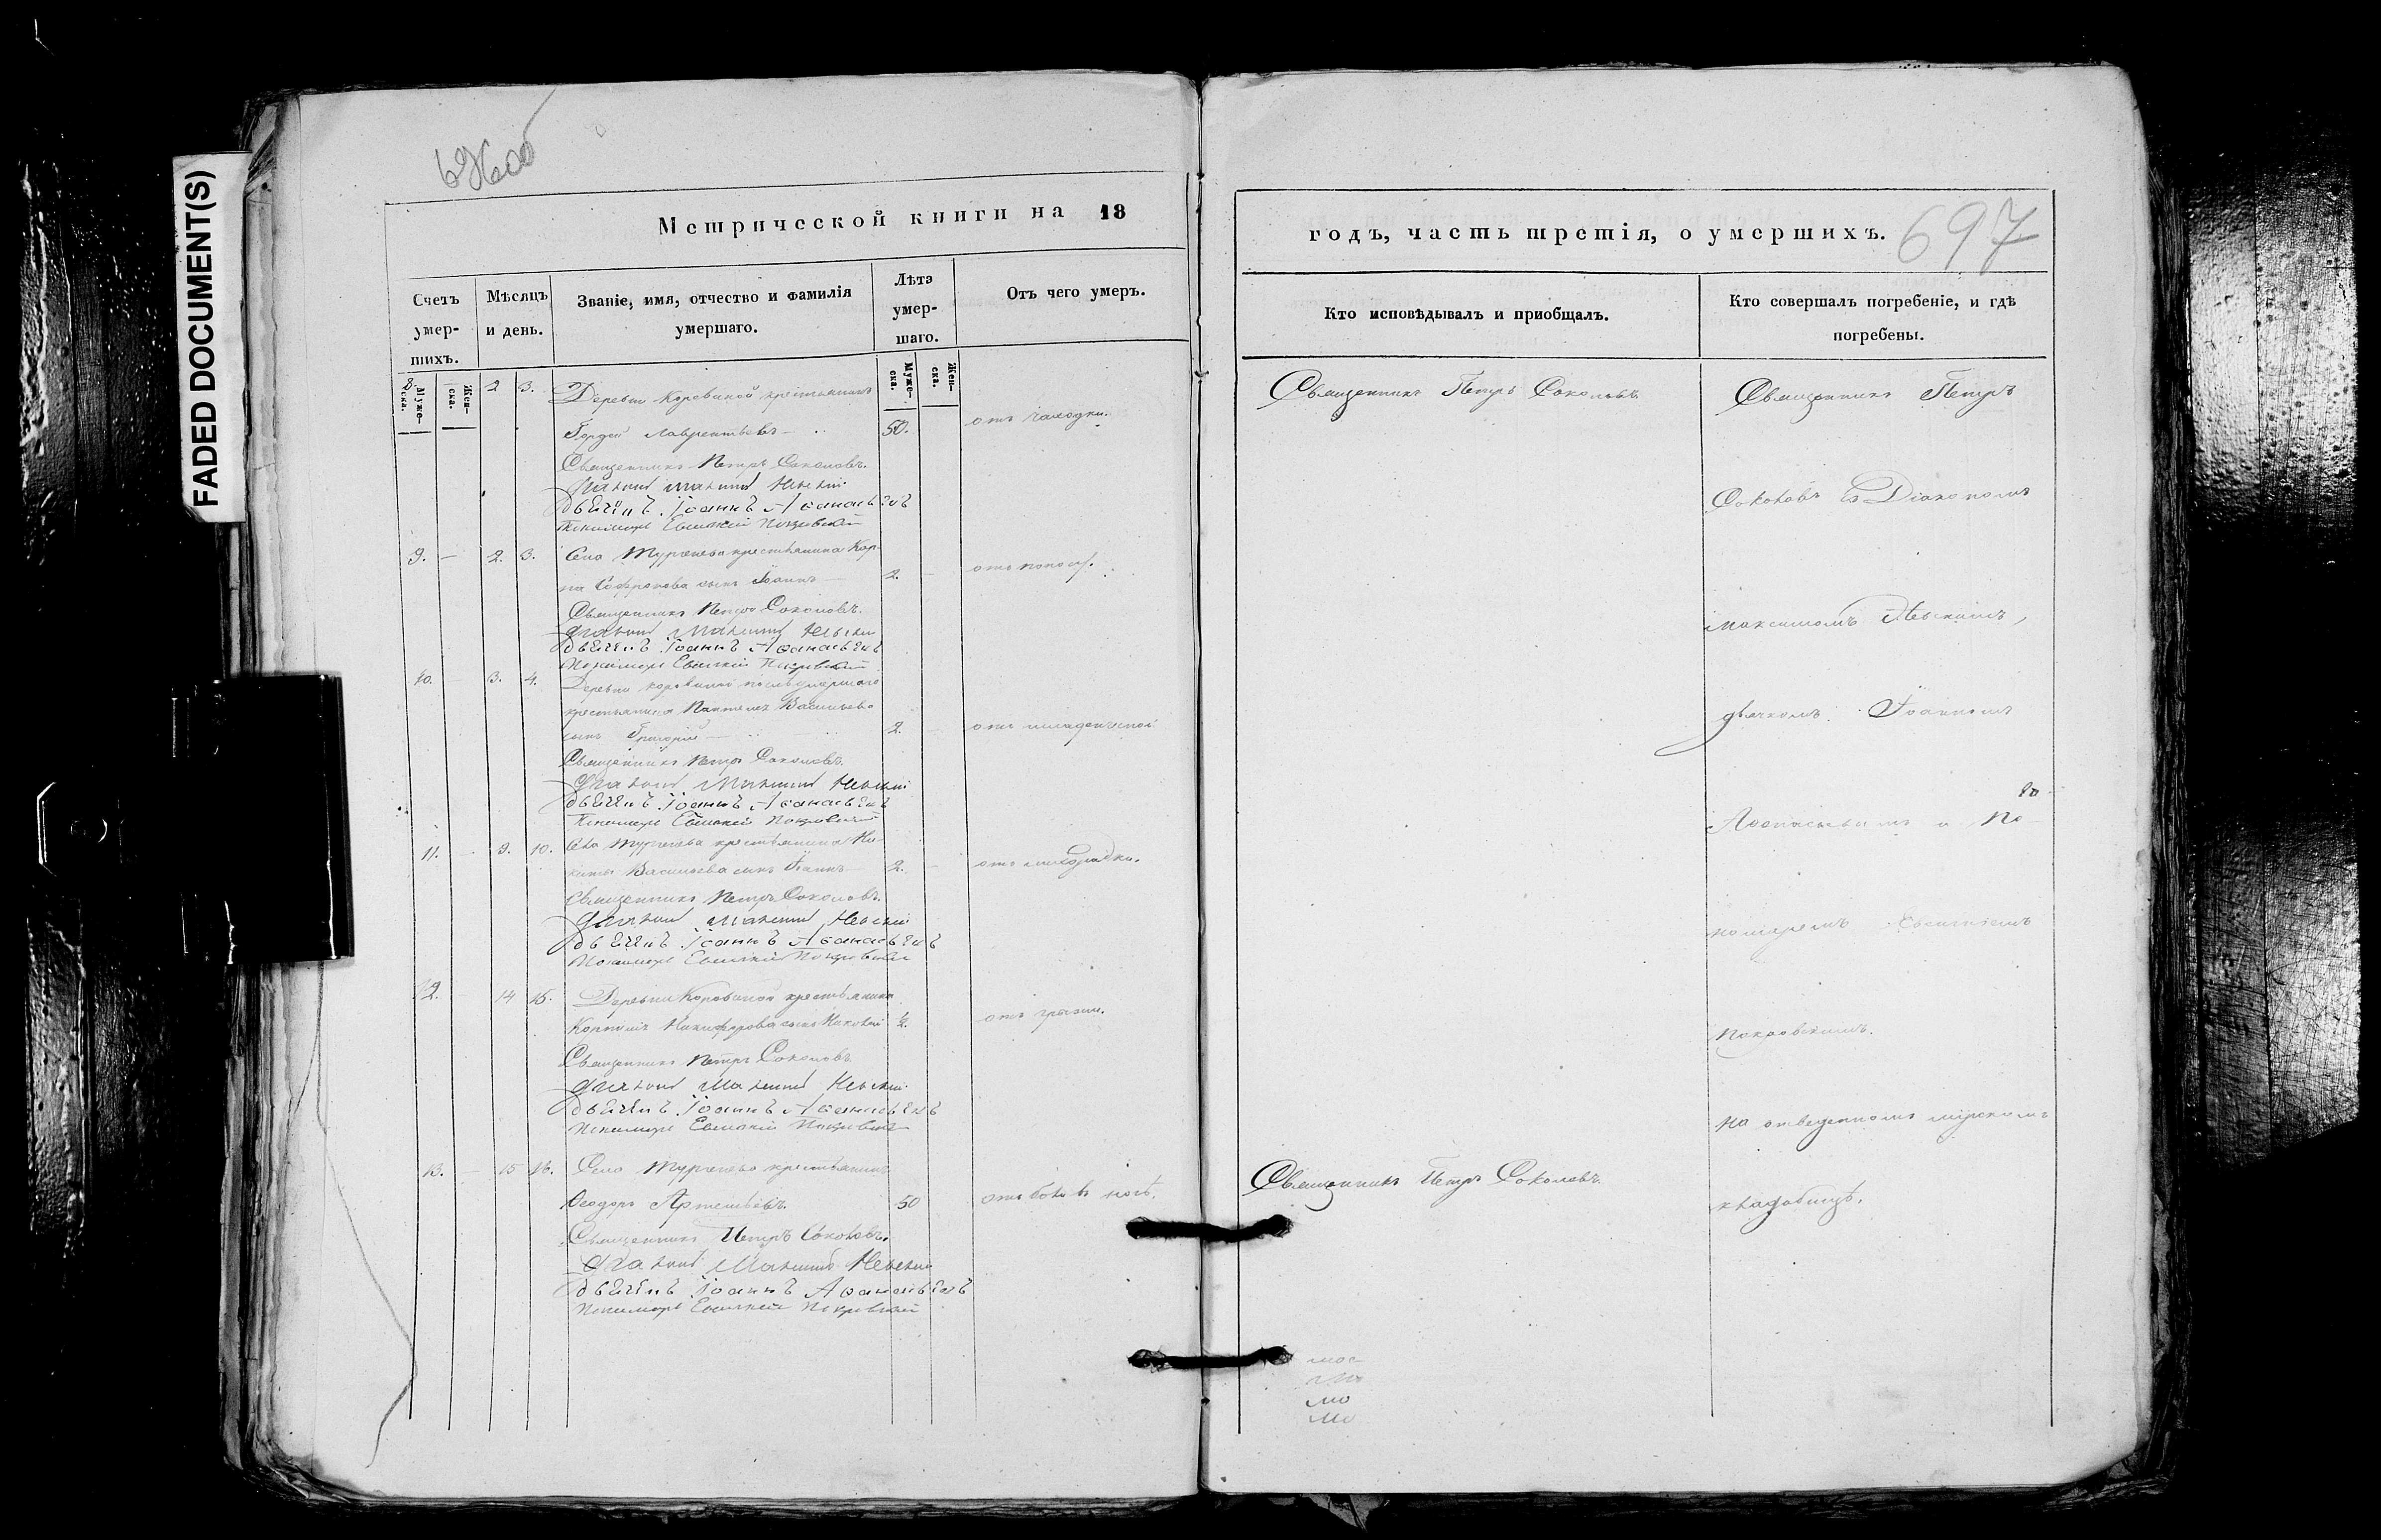 FADED DOCUMENT(S)
696об
Метрической книги на 18
Счетъ умер-шихъ.
Мѣсяцъ и день.
Званіе, имя, отчество и фамилія умершаго.
Лѣта умер-шаго.
Отъ чего умеръ.
Муже-ска.
Жен-ска.
Муже-ска.
Жен-ска.
8. 2 3. Деревни Коровиной крестьянинъ
Гордей Лаврентьевъ — 50. отъ чаходки.
Священникъ Петръ Соколовъ.
Діаконъ Максимъ Невскій
дьячекъ Іоаннъ Аѳанасьевъ
Пономарь Евсигній Покровскій
9. — 2. 3. Села Тургенева крестьянина Кар-
па Софронова сынъ Іоаннъ — 2. — отъ поносу.
Священникъ Петръ Соколовъ.
Діаконъ Максимъ Невскій
дьячекъ Іоаннъ Аѳанасьевъ
Пономарь Евсигній Покровскій
10. — 3. 4. Деревни Коровиной послѣ умершаго
крестьянина Васильева
сынъ Григорій — 2. — отъ младенческой
Священникъ Петръ Соколовъ.
Діаконъ Максимъ Невскій
дьячекъ Іоаннъ Аѳанасьевъ
Пономарь Евсигній Покровскій
11. — 9. 10. Села Тургенева крестьянина Ни-
киты Васильева сынъ Іоаннъ 2. — отъ лихорадки.
Священникъ Петръ Соколовъ.
Діаконъ Максимъ Невскій
дьячекъ Іоаннъ Аѳанасьевъ
Пономарь Евсигній Покровскій
12. — 14 15. Деревни Коровиной крестьянина
Никифорова сынъ ½. отъ грыжи.
Священникъ Петръ Соколовъ
Діаконъ Максимъ Невскій
дьячекъ Іоаннъ Аѳанасьевъ
Пономарь Евсигній Покровскій
13. — 15 16. Села Тургенева крестьянинъ
Ѳеодоръ Артемьевъ. 50 отъ боли въ ногѣ.
Священникъ Петръ Соколовъ.
Діаконъ Максимъ Невскій
дьячекъ Іоаннъ Аѳанасьевъ
Пономарь Евсигній Покровскій
годъ, часть третія, о умершихъ.
697
Кто исповѣдывалъ и приобщалъ.
Кто совершалъ погребеніе, и гдѣ погребены.
Священникъ Петръ Соколовъ.
Священникъ Петръ
Соколовъ съ Діакономъ
Максимомъ Невскимъ,
дьячкомъ Іоанномъ
Аѳанасьевымъ и По-
номаремъ Евсигніемъ
Покровскимъ.
на отведенномъ мірскомъ
кладбищѣ.
Священникъ Петръ Соколовъ.
мо
мо